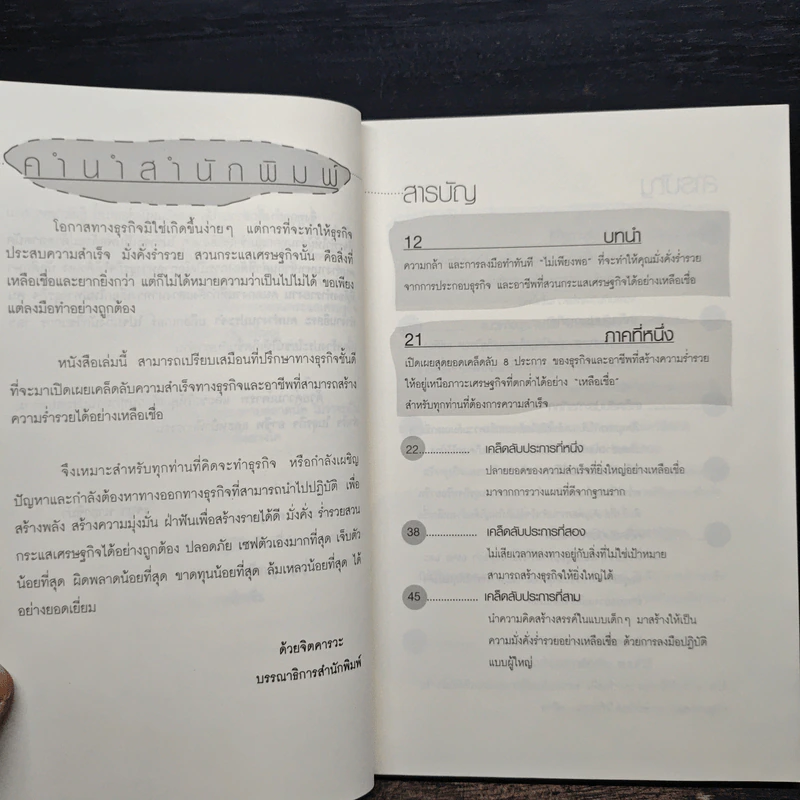 คำนำสำนักพิมพ์
โอกาสทางธุรกิจมิใช่เกิดขึ้นง่ายๆ แต่การที่จะทำให้ธุรกิจ
ประสบความสำเร็จ มั่งคั่งร่ำรวย สวนกระแสเศรษฐกิจนั้น คือสิ่งที่
เหลือเชื่อและยากยิ่งกว่า แต่ก็ไม่ได้หมายความว่าเป็นไปไม่ได้ ขอเพียง
แต่ลงมือทำอย่างถูกต้อง
หนังสือเล่มนี้ สามารถเปรียบเสมือนที่ปรึกษาทางธุรกิจชั้นดี
ที่จะมาเปิดเผยเคล็ดลับความสำเร็จทางธุรกิจและอาชีพที่สามารถสร้าง
ความร่ำรวยได้อย่างเหลือเชื่อ
จึงเหมาะสำหรับทุกท่านที่คิดจะทำธุรกิจ หรือกำลังเผชิญ
ปัญหาและกำลังต้องหาทางออกทางธุรกิจที่สามารถนำไปปฏิบัติ เพื่อ
สร้างพลัง สร้างความมุ่งมั่น ฝ่าฟันเพื่อสร้างรายได้ดี มั่งคั่ง ร่ำรวยสวน
กระแสเศรษฐกิจได้อย่างถูกต้อง ปลอดภัย เซฟตัวเองมากที่สุด เจ็บตัว
น้อยที่สุด ผิดพลาดน้อยที่สุด ขาดทุนน้อยที่สุด ล้มเหลวน้อยที่สุด ได้
อย่างยอดเยี่ยม
ด้วยจิตคารวะ
บรรณาธิการสำนักพิมพ์
สารบัญ
12 บทนำ
ความกล้า และการลงมือทำทันที "ไม่เพียงพอ" ที่จะทำให้คุณมั่งคั่งร่ำรวย
จากการประกอบธุรกิจ และอาชีพที่สวนกระแสเศรษฐกิจได้อย่างเหลือเชื่อ
21 ภาคที่หนึ่ง
เปิดเผยสุดยอดเคล็ดลับ 8 ประการ ของธุรกิจและอาชีพที่สร้างความร่ำรวย
ให้อยู่เหนือภาวะเศรษฐกิจที่ตกต่ำได้อย่าง "เหลือเชื่อ"
สำหรับทุกท่านที่ต้องการความสำเร็จ
22................. เคล็ดลับประการที่หนึ่ง
ปลายยอดของความสำเร็จที่ยิ่งใหญ่อย่างเหลือเชื่อ
มาจากการวางแผนที่ดีจากฐานราก
38................. เคล็ดลับประการที่สอง
ไม่เสียเวลาหลงทางอยู่กับสิ่งที่ไม่ใช่เป้าหมาย
สามารถสร้างธุรกิจให้ยิ่งใหญ่ได้
45................. เคล็ดลับประการที่สาม
นำความคิดสร้างสรรค์ในแบบเด็กๆ มาสร้างให้เป็น
ความมั่งคั่งร่ำรวยอย่างเหลือเชื่อ ด้วยการลงมือปฏิบัติ
แบบผู้ใหญ่